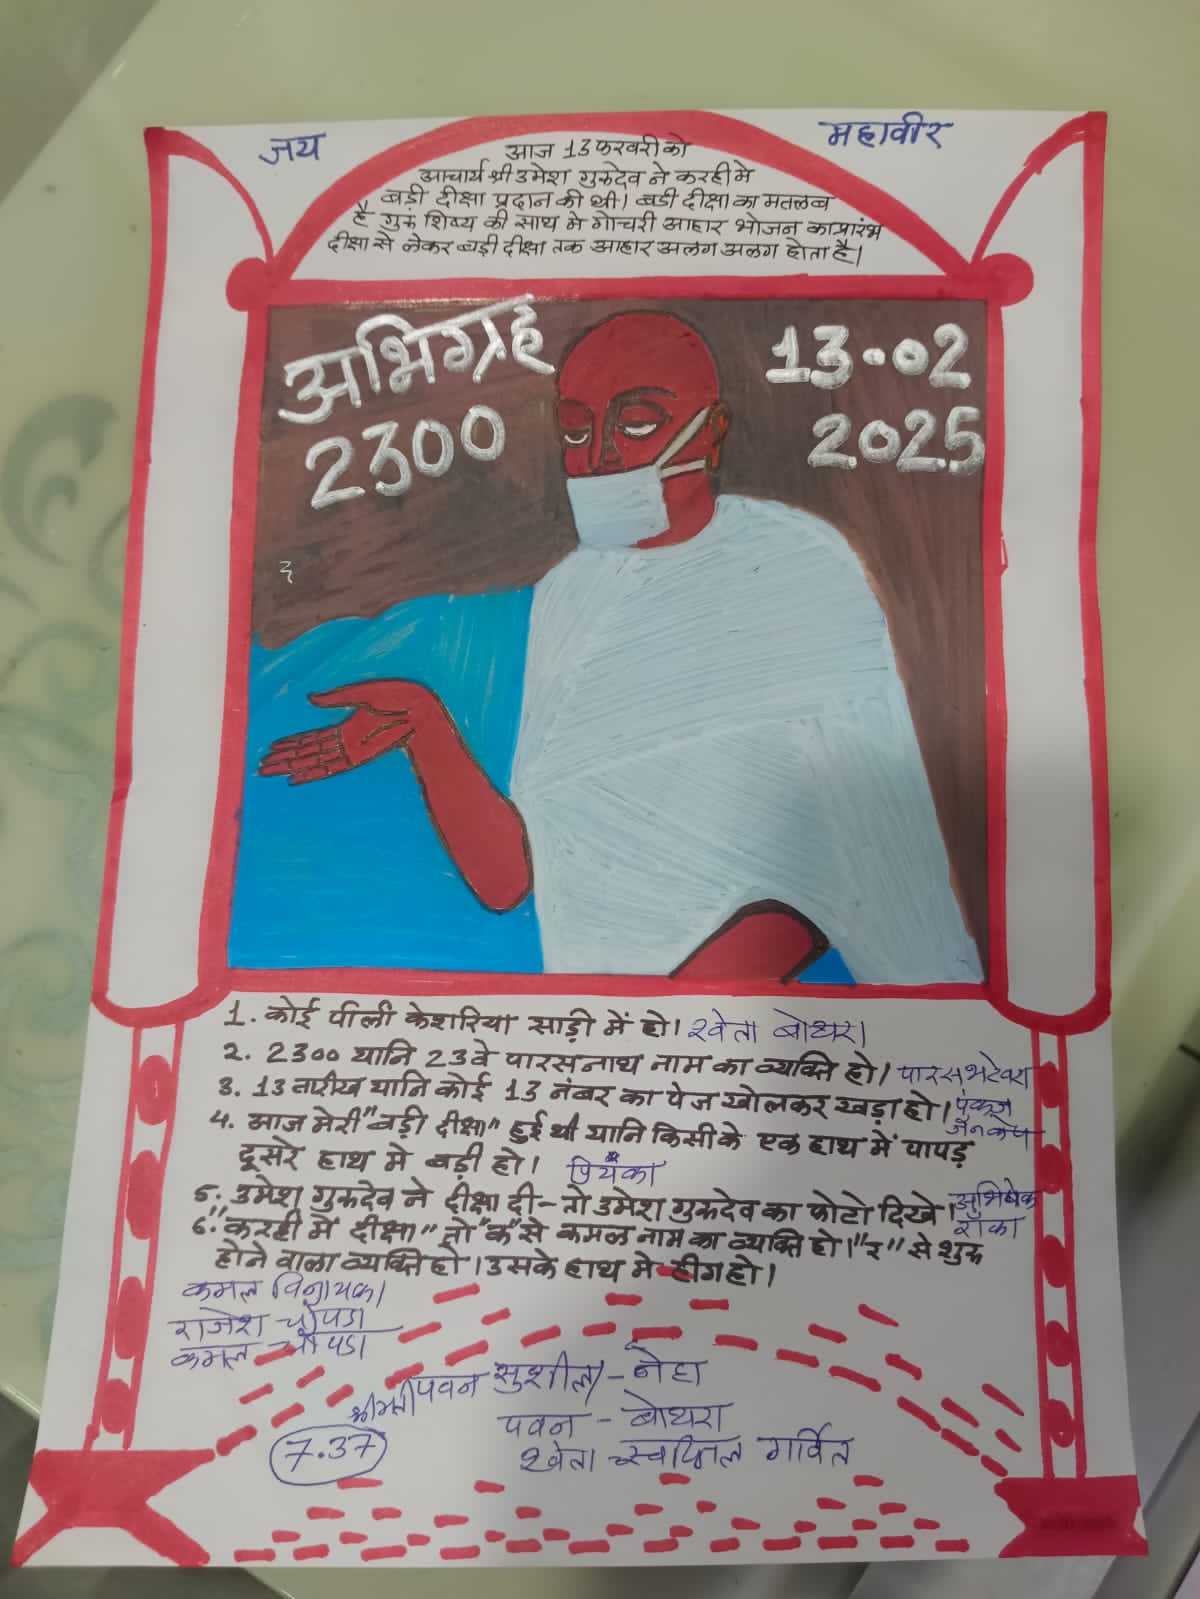 जय
महावीर
आज 13 फरवरी को
आचार्य श्री उमेश गुरूदेव ने करही मे
बड़ी दीक्षा प्रदान की थी। बडी दीक्षा का मतलब
है गुरू शिष्य की साथ मे गोचरी आहार भोजन का प्रारंभ
दीक्षा से लेकर बड़ी दीक्षा तक आहार अलग अलग होता है।
अभिग्रह
2300
13-02
2025
1. कोई पीली केशरिया साड़ी में हो। श्वेता बोथरा
2. 2300 यानि 23वे पारसनाथ नाम का व्यक्ति हो। पारस भटेवरा
3. 13 तारीख यानि कोई 13 नंबर का पेज खोलकर खड़ा हो। पंकज
4. आज मेरी "बड़ी दीक्षा" हुई थी यानि किसी के एक हाथ में पापड़
दूसरे हाथ मे बड़ी हो। प्रियंका
5. उमेश गुरूदेव ने दीक्षा दी - तो उमेश गुरूदेव का फोटो दिखे। अभिषेक
रांका
6. "करही में दीक्षा" तो "क" से कमल नाम का व्यक्ति हो। "र" से शुरू
होने वाला व्यक्ति हो। उसके हाथ मे हींग हो।
कमल विनायका
राजेश चौपडा
कमल चौपडा
श्रीमती पवन सुशीला - नेहा
पवन - बोथरा
श्वेता स्वप्निल गर्वित
7.37